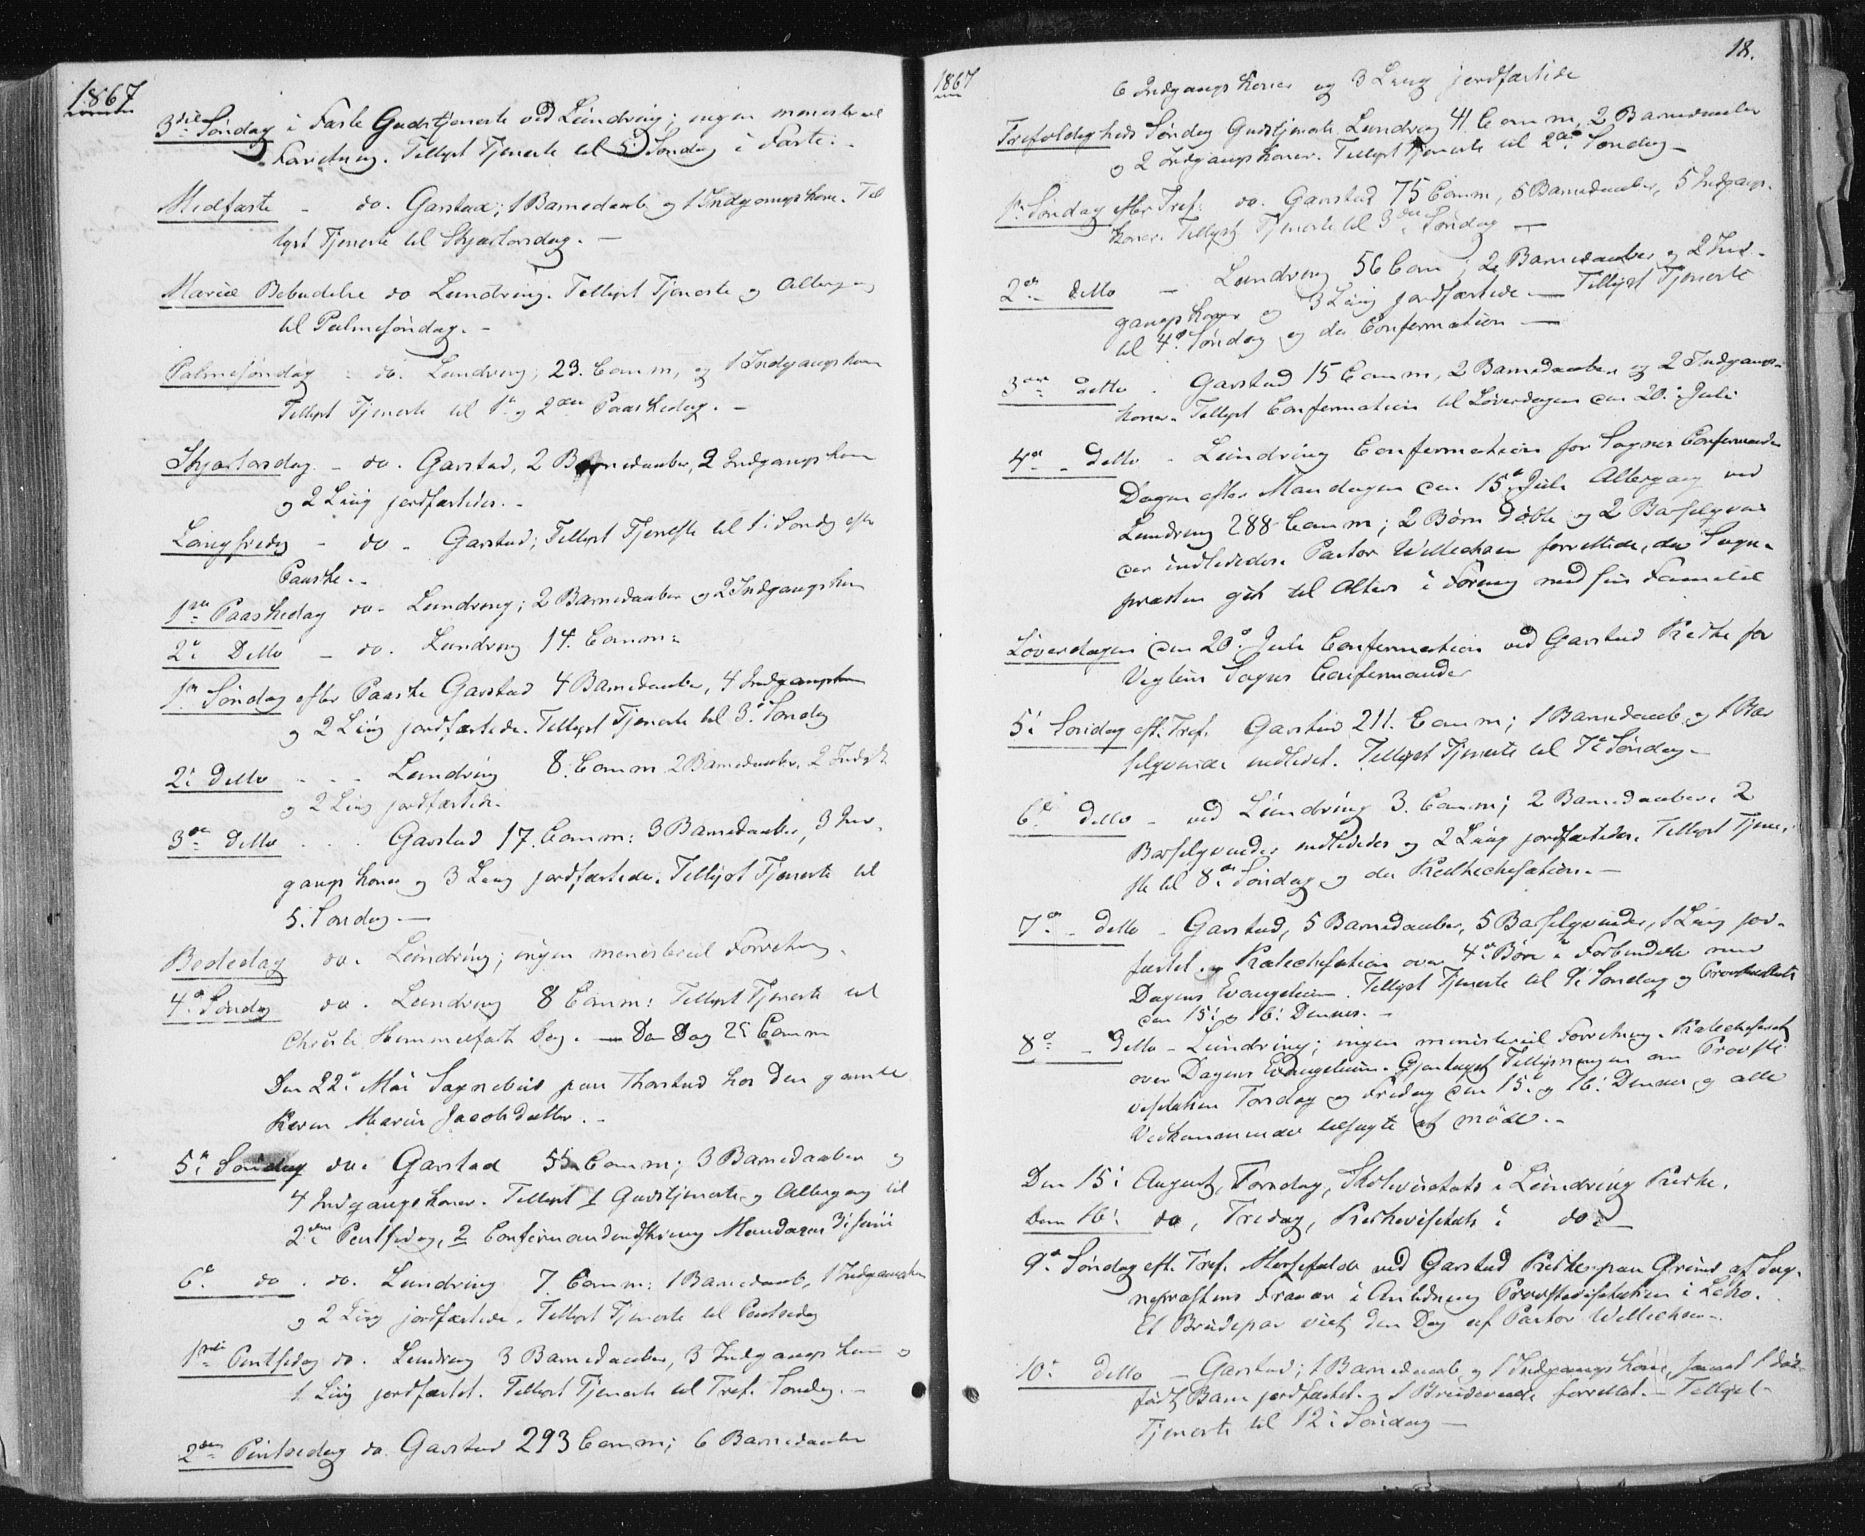 1867
3die Søndag i Faste Gudstjeneste ved Lundring; ingen ministeriel
Forretning. Tillyst Tjeneste til 5 Søndag i Faste.
Midfaste - do. Garstad; 1 Barnedaab og 1 Indgangskone. Til
lyst Tjeneste til Skjærtorsdag. -
Mariæ Bebudelse do Lundring. Tillyst Tjeneste og Altergang
til Palmesøndag. -
Palmesøndag - do. Lundring; 23. Comm, og 1 Indgangskone
Tillyst Tjeneste til 1ste og 2den Paaskedag. -
Skjærtorsdag - do. Garstad, 2 Barnedaaber, 2 Indgangskoner
og 2 Liig jordfæstede. -
Langfredag - do - Garstad; Tillyst Tjeneste til 1ste Søndag efter
Paaske. -
1ste Paaskedag do - Lundring; 2 Barnedaaber og 2 Indgangskoner
2. Ditto - do. Lundring 14. Comm:
1ste Søndag efter Paaske Garstad 4 Barnedaaber, 4 Indgangskoner
og 2 Liig jordfæstede. Tillyst Tjeneste til 3. Søndag
2. Ditto - - - Lundring 8. Comm 2 Barnedaaber, 2 Indgk
og 2 Liig jordfæstede.
3die Ditto - - - Garstad 17. Comm: 3 Barnedaaber, 3 Ind-
gangskoner og 3 Liig jordfæstede. Tillyst Tjeneste til
5. Søndag. -
Bededag do. Lundring; ingen ministeriel Forretning.
4. Søndag do. Lundring 8 Comm: Tillyst Tjeneste til
Christi Himmelfarts Dag. - Do Dag 25 Comm
Den 22. Mai Sognebud paa Thorstad hos den gamle
Karen Marie Jacobsdatter. -
5. Søndag do. Garstad 55 Comm; 3 Barnedaaber og
4 Indgangskoner. Tillyst 1 Gudstjeneste og Altergang til
2den Pintsedag, 2 Confirmandindskrivning Mandagen 3. Juni
6. do. do. Lundring 7. Comm: 1 Barnedaab, 1 Indgangskone
og 2 Liig jordfæstede. Tillyst Tjeneste til Pintsedag
1ste Pintsedag do. Lundring 3 Barnedaaber, 3 Indgangskoner og
1 Liig jordfæstet. Tillyst Tjeneste til Tref. Søndag. -
2den Pintsedag do. Garstad 293 Comm; 6 Barnedaaber
18.
1867
6 Indgangskoner og 3 Liig jordfæstede
Trefoldigheds Søndag Gudstjeneste Lundring 41 Comm, 2 Barnedaaber
og 2 Indgangskoner. Tillyst Tjeneste til 2den Søndag -
1ste Søndag efter Tref. do. Garstad 75 Comm, 5 Barnedaaber, 5 Indgangs-
koner. Tillyst Tjeneste til 3die Søndag -
2den Ditto - Lundring 56 Com; 2 Barnedaaber og 2 Ind-
gangskoner og 3 Liig jordfæstede - Tillyst Tjeneste
til 4. Søndag og da Confirmation -
3die Ditto . Garstad 15 Comm, 2 Barnedaaber og 2 Indgangs-
koner. Tillyst Confirmation til Løverdagen den 20. Juli
4de - Ditto - Lundring Confirmation for Sognes Confirmander
Dagen efter Mandagen den 15. Juli Altergang ved
Lundring 288 Comm; 2 Børn døbte og 2 Barselqvin
der indlededes. Pastor Willechsen forrettede, da Sogne
præsten gik til Alters i Foreng med sin Familie
Løverdagen den 20. Juli Confirmation ved Garstad Kirke for
Vegteins Sogns Confirmander
5. Søndag eft. Tref. Garstad 211. Comm; 1 Barnedaab og 1 Bar
selqvinde indledet. Tillyst Tjeneste til 7. Søndag -
6. Ditto - ved Lundring 3. Comm; 2 Barnedaaber, 2
Barselqvinder indlededes og 2 Liig jordfæstedes. Tillyst Tjene-
ste til 8. Søndag og da Kirkechisation. -
7. - Ditto - Garstad, 5 Barnedaaber, 5 Barselqvinder, 1 Liig jor-
fæstet og Katechisation over 4. Bøn i Forbindelse med
Dagens Evangelium. Tillyst Tjeneste til 9. Søndag og Provstvisitats
den 15. og 16. Dennes. -
8. - Ditto - Lundring; ingen ministeriel Forretning. Katechiseret
over Dagens Evangelium. Gjentaget Tillysningen om Provste
visitatsen Torsdag og Fredag den 15. og 16. Dennes og alle
Vedkommende tilsagte at møde. -
Den 15. August, Torsdag, Skolevisitats i Lundring Kirke.
Den 16. do, Fredag, Kirkevisitats i do. -
9. Søndag eft. Tref. Messefald ved Garstad Kirke paa Grund af Sog-
nepræstens Fravær i Anledning Provstevisitatsen i Leko.
Et Brudepar viet den Dag af Pastor Willechsen. -
10. Ditto - Garstad; 1 Barnedaab og 1 Indgangskone, samt 1 død-
født Barn jordfæstet og 1 Brudevielse forrettet. - Tillyst
Tjeneste til 12. Søndag -